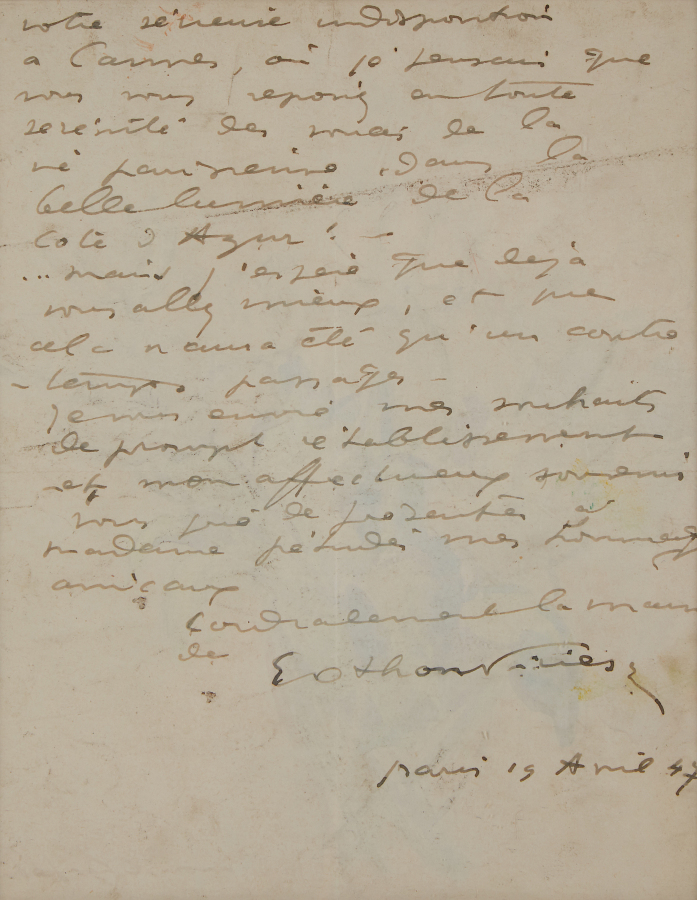 votre sérieuse indisposition
a Cannes, où je pensais que
vous vous reposiez en toute
serenité des soucis de la
vie parisienne, dans la
belle lumière de la
Cote d'Azur! —
... mais j'espere que deja
vous allez mieux, et que
cela n'aura été qu'un contre
-temps passager —
Je vous envoie mes souhaits
de prompt retablissement
et mon affectueux souvenir
vous prie de presenter à
madame mes hommages
amicaux
Cordialement la main
de
E Othon Friesz
paris 19 Avril 47